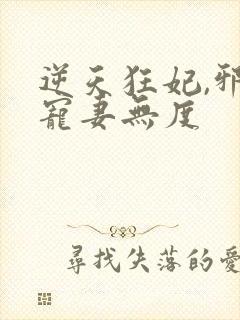 逆天狂妃,邪
寵妻無度
尋找失落的愛